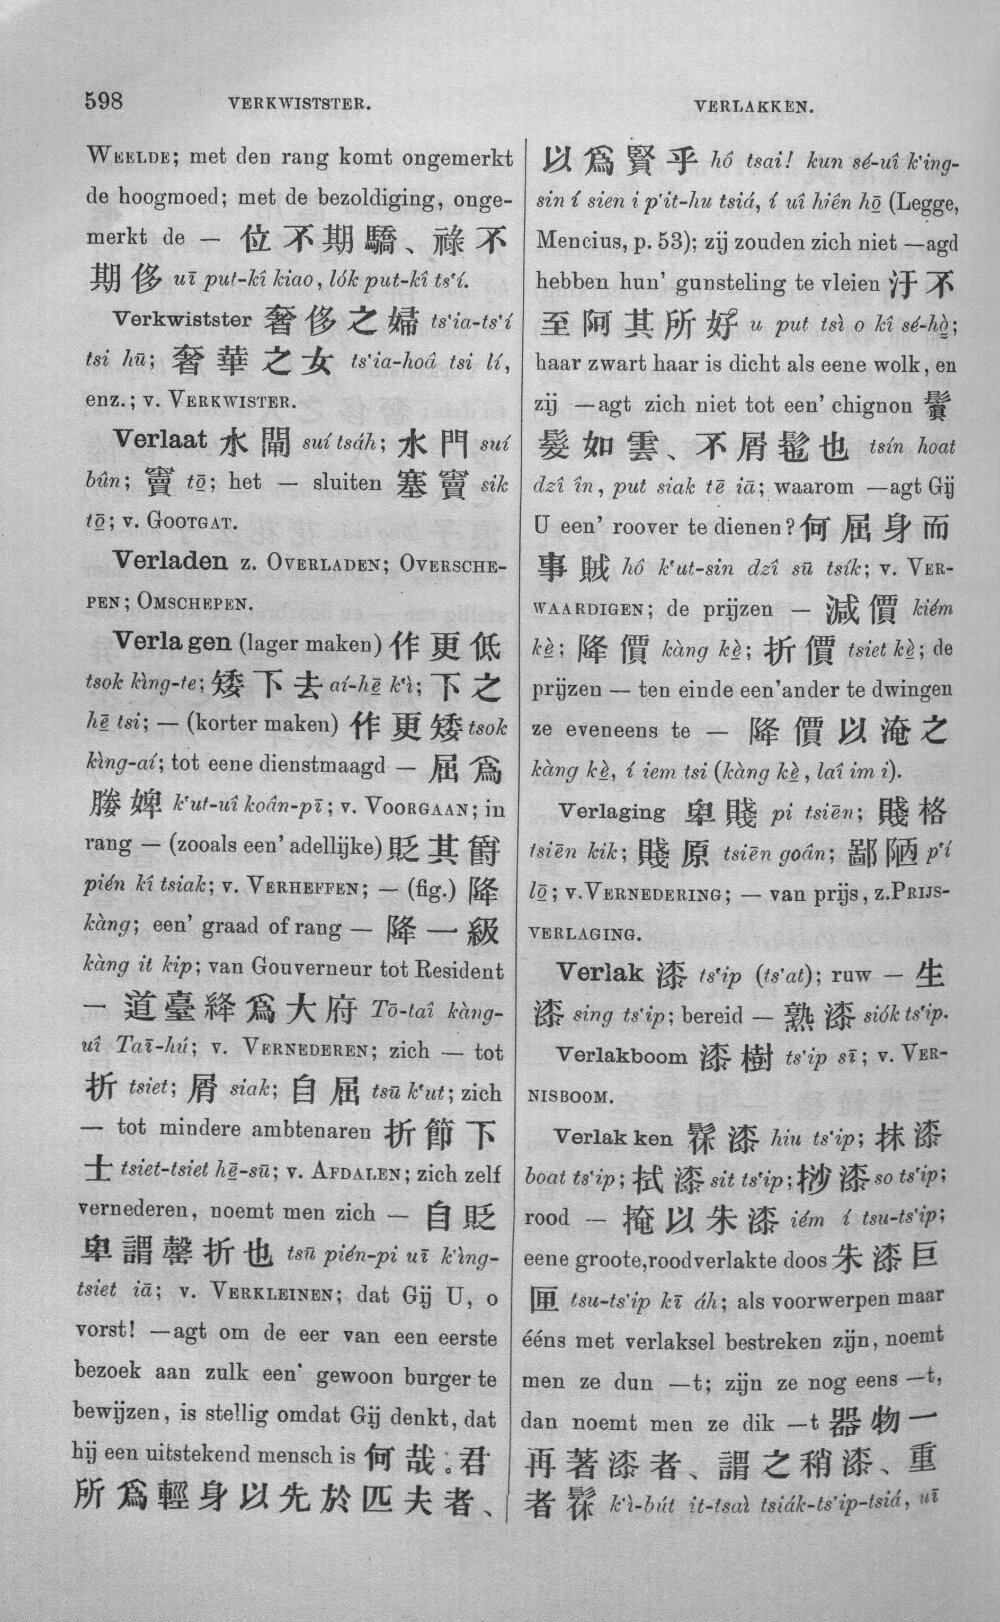 598
VERKWISTSTER.
VERLAKKEN.
WEELDE; met den rang komt ongemerkt
de hoogmoed; met de bezoldiging, onge-
merkt de — 位不期驕、祿不
期侈 uī put-kî kiao, lók put-kî ts‘í.
Verkwistster 奢侈之婦 ts‘ia-ts‘í
tsi hū; 奢華之女 ts‘ia-hoâ tsi lí,
enz.; v. VERKWISTER.
Verlaat 水閘 suí tsáh; 水門 suí
bûn; 竇 tō̤; het — sluiten 塞竇 sik
tō̤; v. GOOTGAT.
Verladen z. OVERLADEN; OVERSCHE-
PEN; OMSCHEPEN.
Verlagen (lager maken) 作更低
tsok kìng-te; 矮下去 aí-hē̤ k‘ì; 下之
hē̤ tsi; — (korter maken) 作更矮 tsok
kìng-aí; tot eene dienstmaagd — 屈爲
媵婢 k‘ut-uî koân-pī; v. VOORGAAN; in
rang — (zooals een’ adellijke) 貶其爵
pién kî tsiak; v. VERHEFFEN; — (fig.) 降
kàng; een’ graad of rang — 降一級
kàng it kip; van Gouverneur tot Resident
— 道臺絳爲大府 Tō-taî kàng-
uî Taī-hú; v. VERNEDEREN; zich — tot
折 tsiet; 屑 siak; 自屈 tsū k‘ut; zich
— tot mindere ambtenaren 折節下
士 tsiet-tsiet hē̤-sū; v. AFDALEN; zich zelf
vernederen, noemt men zich — 自貶
卑謂罄折也 tsū pién-pi uī k‘ìng-
tsiet iā; v. VERKLEINEN; dat Gij U, o
vorst! —agt om de eer van een eerste
bezoek aan zulk een’ gewoon burger te
bewijzen, is stellig omdat Gij denkt, dat
hij een uitstekend mensch is 何哉.君
所爲輕身以先於匹夫者、
以爲賢乎 hô tsai! kun sé-uî k‘ing-
sin í sien i p‘it-hu tsiá, í uî hiên hō̤ (Legge,
Mencius, p. 53); zij zouden zich niet —agd
hebben hun’ gunsteling te vleien 汙不
至阿其所好 u put tsì o kî sé-hò̤;
haar zwart haar is dicht als eene wolk, en
zij —agt zich niet tot een’ chignon 鬒
髮如雲、不屑髢也 tsín hoat
dzî în, put siak tē iā; waarom —agt Gij
U een’ roover te dienen? 何屈身而
事賊 hô k‘ut-sin dzî sū tsík; v. VER-
WAARDIGEN; de prijzen — 減價 kiém
kè̤; 降價 kàng kè̤; 折價 tsiet kè̤; de
prijzen — ten einde een’ander te dwingen
ze eveneens te — 降價以淹之
kàng kè̤, í iem tsi (kàng kè̤, laî im i).
Verlaging 卑賤 pi tsiēn; 賤格
tsiēn kik; 賤原 tsiēn goân; 鄙陋 p‘í
lō̤; v. VERNEDERING; — van prijs, z. PRIJS-
VERLAGING.
Verlak 漆 ts‘ip (ts‘at); ruw — 生
漆 sing ts‘ip; bereid — 熟漆 siók ts‘ip.
Verlakboom 漆樹 ts‘ip sī; v. VER-
NISBOOM.
Verlakken 髹漆 hiu ts‘ip; 抹漆
boat ts‘ip; 拭漆 sit ts‘ip; 挱漆 so ts‘ip;
rood — 掩以朱漆 iém í tsu-ts‘ip;
eene groote, roodverlakte doos 朱漆巨
匣 tsu-ts‘ip kī áh; als voorwerpen maar
ééns met verlaksel bestreken zijn, noemt
men ze dun —t; zijn ze nog eens —t,
dan noemt men ze dik —t 器物一
再著漆者、謂之稍漆、重
者髹 k‘ì-bút it-tsaì tsiák-ts‘ip-tsiá, uī